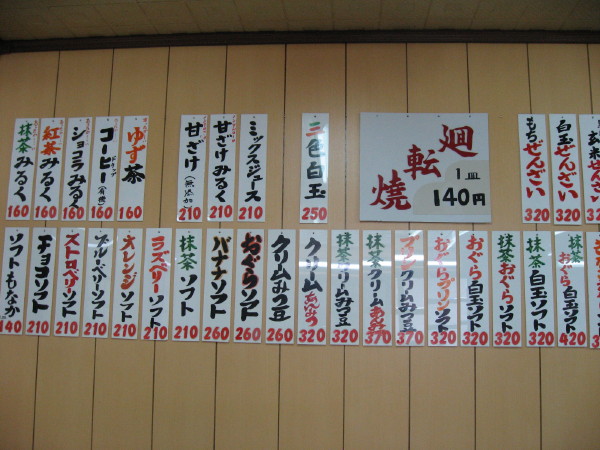 抹茶みるく
160
紅茶みるく
160
ショコラみるく
160
コーヒー
160
ゆず茶
160
甘ざけ(無添加)
210
甘ざけみるく
210
ミックスジュース
210
三色白玉
250
廻転焼
1皿
140円
もちぜんざい
320
白玉ぜんざい
320
玄米ぜんざい
ソフトもなか
140
チョコソフト
210
ストロベリーソフト
210
ブルーベリーソフト
210
オレンジソフト
210
ラズベリーソフト
210
抹茶ソフト
210
バナナソフト
260
おぐらソフト
260
クリームみつ豆
260
クリームあんみつ
320
抹茶クリームみつ豆
320
抹茶クリームあんみつ
370
プリンクリームみつ豆
370
おぐらプリンソフト
320
おぐら白玉ソフト
320
抹茶おぐらソフト
320
抹茶白玉ソフト
320
抹茶おぐら白玉ソフト
420